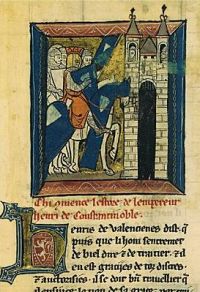 Chi comence lestore de lempereur
henri de Constantinoble
Henris de valencienes dist q̃
puis que li hom sentremet
de biel dire & de traitier. & il
en est gracijes de toz discres
& auctorisies. il se doit bñ travellier